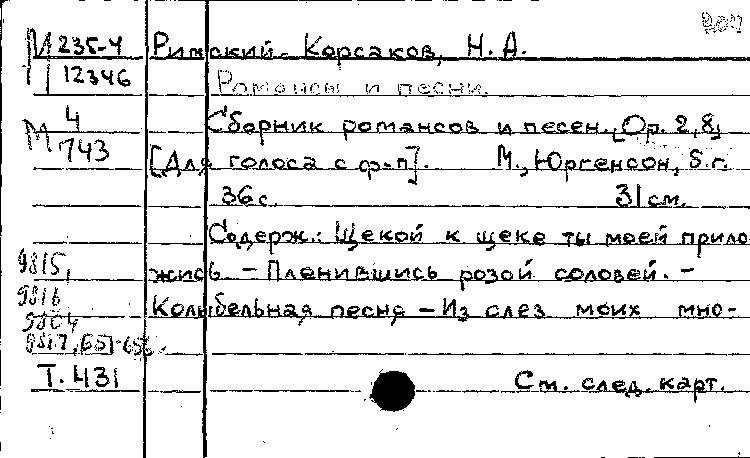 М 235-4 Римский-Корсаков, Н. А.
12346 Романсы и песни.
М 4/743 Сборник романсов и песен. Ор. 2,8,
[Для голоса с ф-п]. М., Юргенсон, s.г.
36 с. 31 см.
Содерж.: Щекой к щеке ты моей прило
9815, жись – Пленившись розой соловей. –
9816 Колыбельная песня – Из слез моих мно-
9804
9817,
Т. 431 См. след. карт.